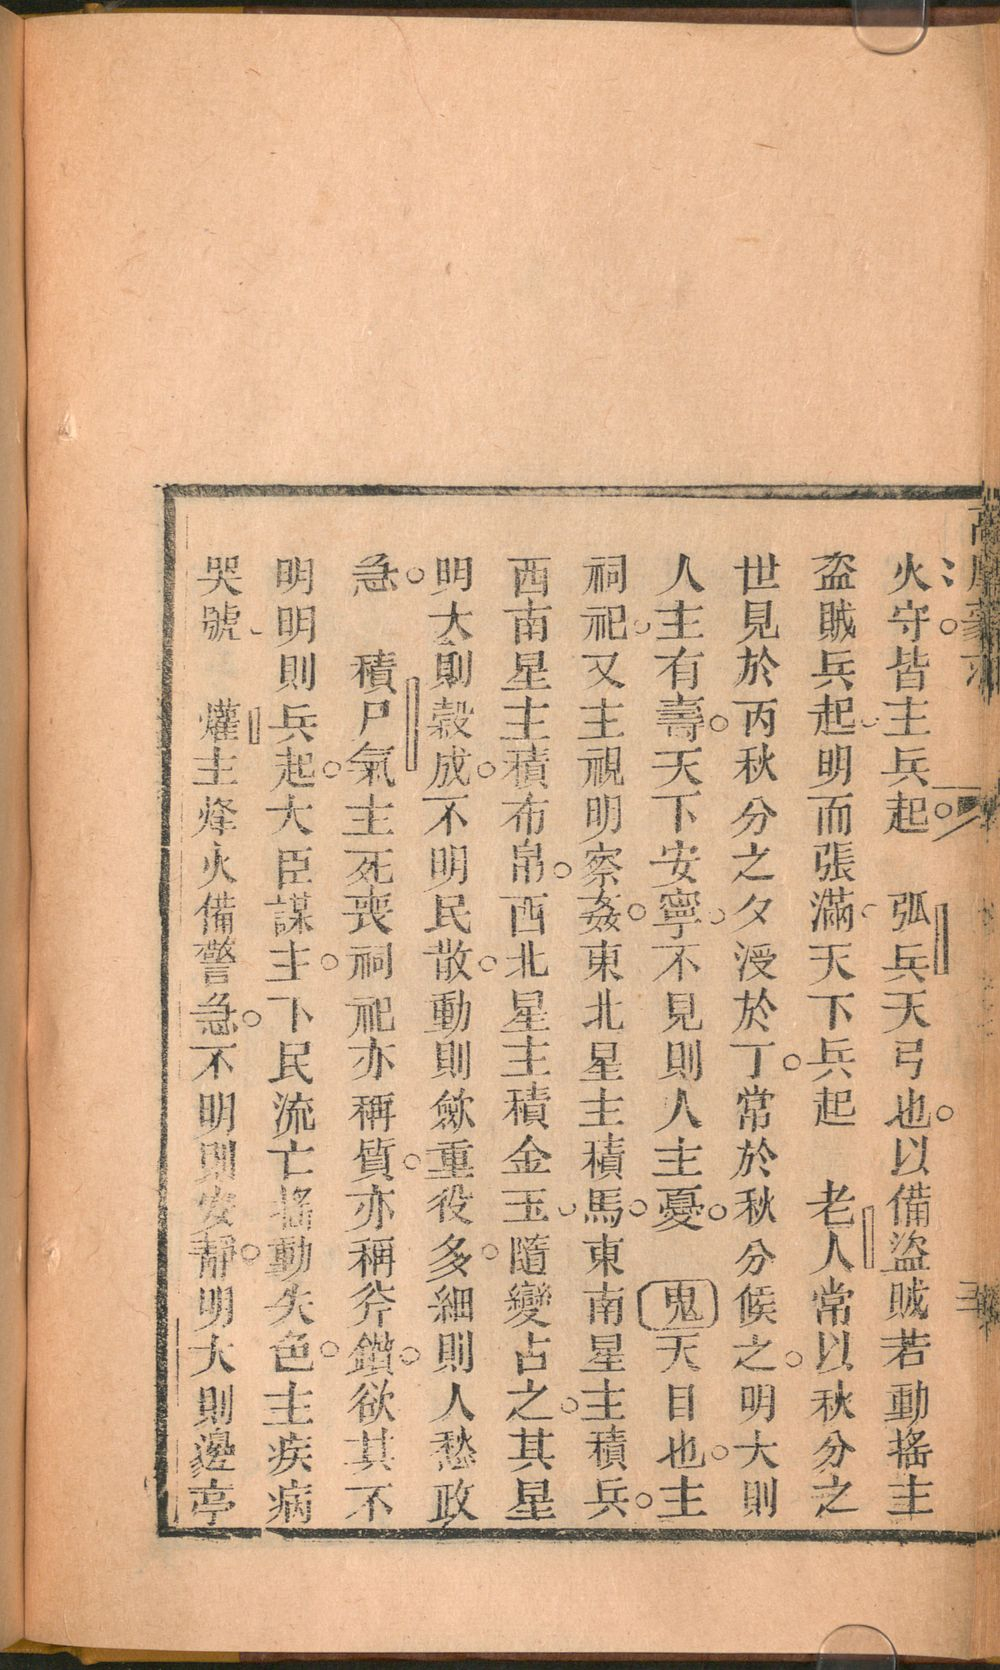 火守皆主兵起　弧兵天弓也以備盜賊若動搖主
盜賊兵起明而張滿天下兵起　老人常以秋分之
世見於丙秋分之夕沒於丁常於秋分候之明大則
人主有壽天下安寧不見則人主憂　鬼天目也主
祠祀又主視明察姦東北星主積馬東南星主積兵
西南星主積布帛西北星主積金玉隨變占之其星
明大則穀成不明民散動則歛重役多細則人愁政
急　積尸氣主死喪祠祀亦稱質亦稱斧鑕欲其不
明明則兵起大臣謀主下民流亡搖動失色主疾病
哭號　爟主烽火備警急不明則安靜明大則邊亭